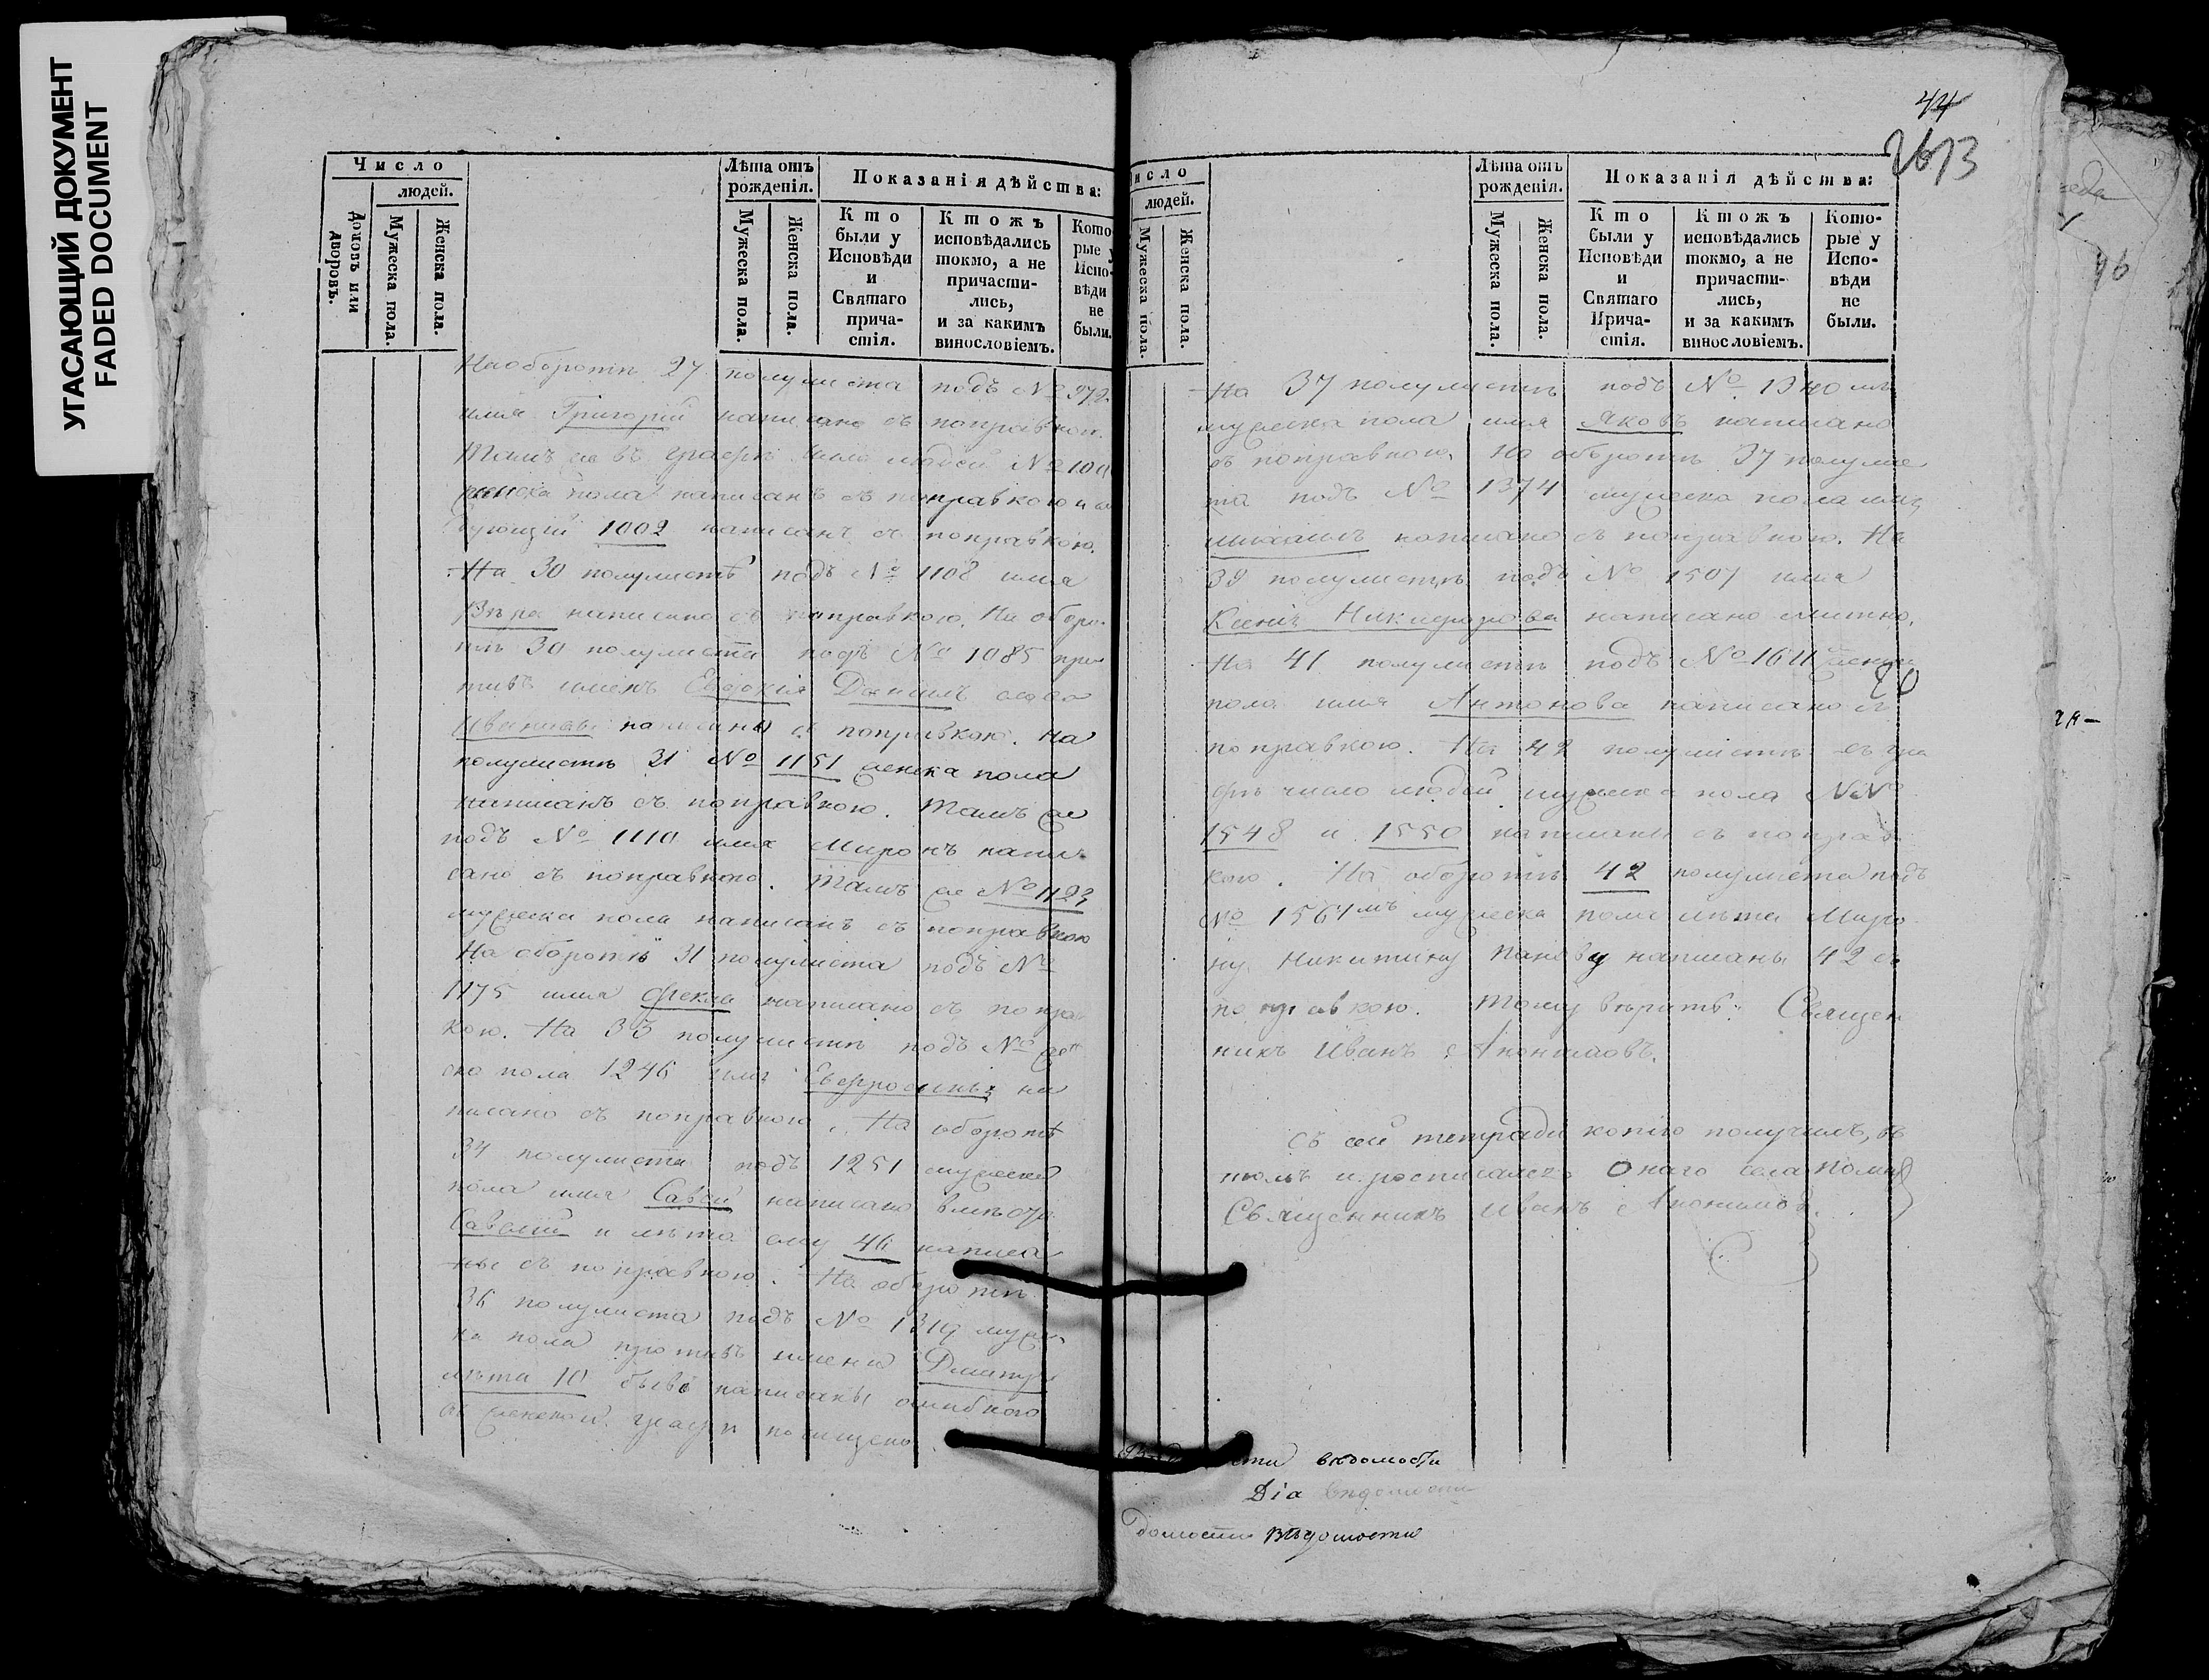 УГАСАЮЩИЙ ДОКУМЕНТ
FADED DOCUMENT
Число
людей.
Домовъ или дворовъ.
Мужеска пола.
Женска пола.
Лѣта отъ рожденія.
Мужеска пола.
Женска пола.
Показанія дѣйства:
Кто были у Исповѣди и Святаго причастія.
Ктожъ исповѣдались токмо, а не причастились, и за какимъ винословіемъ.
Кото-
рые у
Испо-
вѣди
не
были.
На оборотѣ 27 полулиста подъ № 972
имя Григорій написано съ поправкою.
Тамъ же въ графѣ число людей № 100
женска пола написанъ съ поправкою и
дующій 1002 написанъ съ поправкою.
На 30 полулистѣ подъ № 1108 имя
Вѣра написано съ поправкою. На оборо
тѣ 30 полулиста подъ № 1085 про
тивъ именъ Евдокія Даніилъ слова
написаны съ поправкою. На
полулистѣ 31 № 1151 женска пола
написанъ съ поправкою. Тамъ же
подъ № 1110 имя Миронъ напи
сано съ поправкою. Тамъ же № 1123
мужеска пола написанъ съ поправкою
На оборотѣ 31 полулиста подъ №
1175 имя Ѳекла написано съ поправ
кою. На 33 полулистѣ подъ № жен
ско пола 1246 имя Евфросинья на
писано съ поправкою. На оборотѣ
34 полулиста подъ 1251 мужеска
пола имя Савва написано вмѣсто
Савелій и лѣта ему 46 написа
ны съ поправкою. На оборотѣ
36 полулиста подъ № 1319 муже
ка пола противъ имени Дмитрі
лѣта 10 бывъ написаны ошибкою
въ женской графѣ
число
людей.
Мужеска пола.
Женска пола.
Лѣта отъ рожденія.
Мужеска пола.
Женска пола.
Показанія дѣйства:
Кто были у Исповѣди и Святаго Причастія.
Ктожъ исповѣдались токмо, а не причастились, и за какимъ винословіемъ.
Кото-
рые у
Испо-
вѣди
не
были.
44
На 37 полулистѣ подъ № 1340мъ
мужеска пола имя Яковъ написано
съ поправкою. На оборотѣ 37 полулис
та подъ № 1374 мужеска пола имя
Михаилъ написано съ поправкою. На
39 полулистѣ подъ № 1507 имя
Ксенія Никифорова написано
На 41 полулистѣ подъ № 1611 женска
пола имя Антонова написано съ
поправкою. На 42 полулистѣ въ гра
фѣ число людей мужеска пола №№
1548 и 1550 написаны съ поправ
кою. На оборотѣ 42 полулиста подъ
№ 1564мъ мужеска пола лѣта Миро
ну Никитину Панову написаны 42 съ
поправкою. Тому вѣрить: Священ
никъ Иванъ Анонимовъ.
Съ сей тетради копію получилъ, въ
томъ и росписался Онаго села
Священникъ Иванъ Анонимовъ.
вѣдомости
Dіа вѣдомости
домости вѣдомости